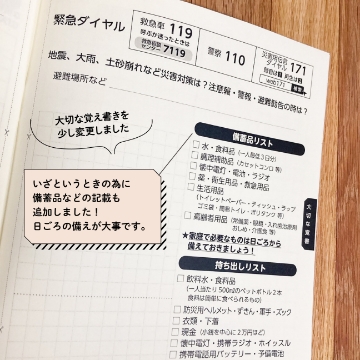 緊急ダイヤル
救急車 119
呼ぶか迷ったときは
救急相談センター 7119
警察 110
災害用伝言ダイヤル 171
web171
地震、大雨、土砂崩れなど災害対策は？注意報・警報・避難勧告の時は？
避難場所など
大切な覚え書きを
少し変更しました
いざというときの為に
備蓄品などの記載も
追加しました！
日ごろの備えが大事です。
備蓄品リスト
水・食料品（一人最低3日分）
調理補助品（カセットコンロ 等）
懐中電灯・電池・ラジオ
薬・衛生用品・救急用品
生活用品
（トイレットペーパー・ティッシュ・ラップ
ゴミ袋・簡易トイレ・ポリタンク 等）
高齢者用品
おしめ・介護食 等）
★家庭で必要なものは日ごろから
備えておきましょう！
大切な覚書
持ち出しリスト
飲料水・食料品
（一人当たり 500mlのペットボトル2本
食料は簡単に食べられるもの）
防災用ヘルメット・ずきん・軍手・ズック
衣類・下着
現金（小銭を中心に2万円ほど）
懐中電灯・携帯ラジオ・ホイッスル
携帯電話用バッテリー・予備電池